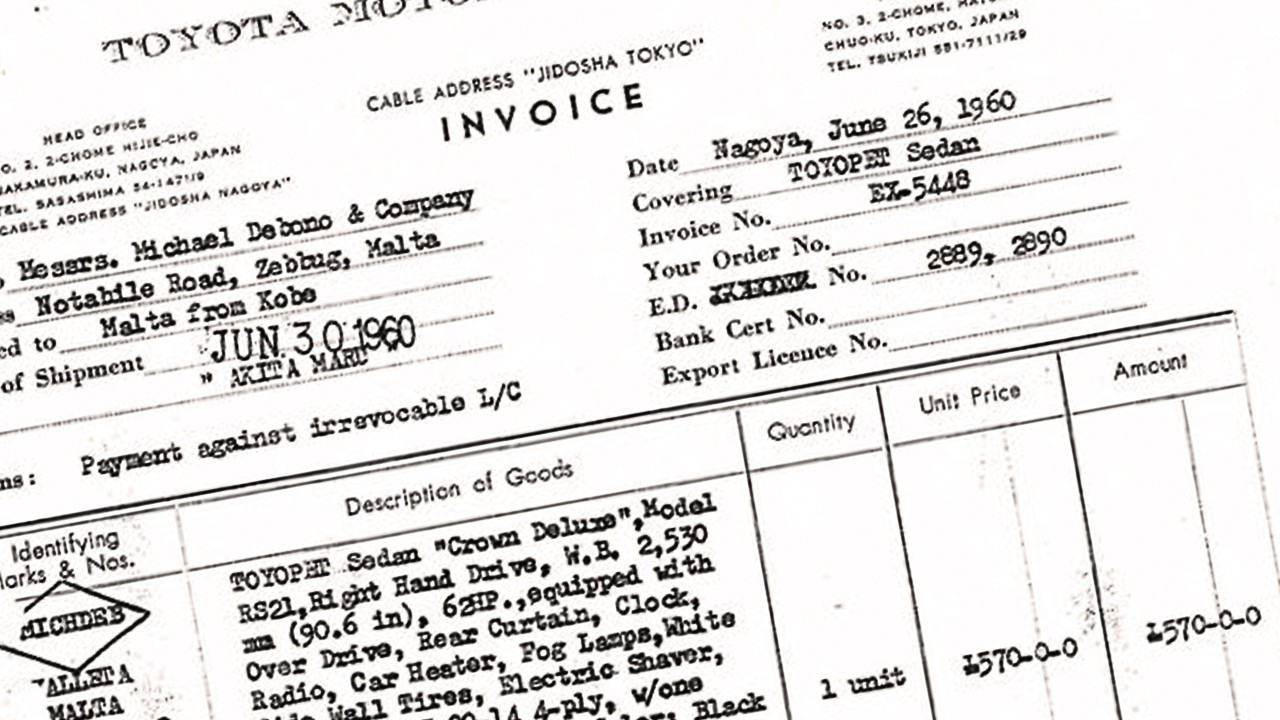 TOYOTA
CABLE ADDRESS "JIDOSHA TOKYO"
INVOICE
NO. 3, 2-CHOME,
CHUO-KU, TOKYO, JAPAN
TEL. TSUKIJI 551-7111/29
HEAD OFFICE
NO. 2, 2-CHOME HIJIE-CHO
NAKAMURA-KU, NAGOYA, JAPAN
TEL. SASASHIMA 54-1471/9
CABLE ADDRESS "JIDOSHA NAGOYA"
Messrs. Michael Debono & Company
Notabile Road, Zebbug, Malta
ed to Malta from Kobe
of Shipment JUN 30 1960
" AKITA MARU "
Date Nagoya, June 26, 1960
Covering TOYOPET Sedan
Invoice No. EX-5448
Your Order No.
E.D. No. 2889, 2890
Bank Cert No.
Export Licence No.
ms: Payment against irrevocable L/C
Identifying
Marks & Nos.
Description of Goods
Quantity
Unit Price
Amount
MICHDEB
VALLETA
MALTA
TOYOPET Sedan "Crown Deluxe", Model
RS21, Right Hand Drive, W.B. 2,530
mm (90.6 in), 62HP., equipped with
Over Drive, Rear Curtain, Clock,
Radio, Car Heater, Fog Lamps, White
Wall Tires, Electric Shaver,
4-ply, w/one
Black
1 unit
£570-0-0
£570-0-0